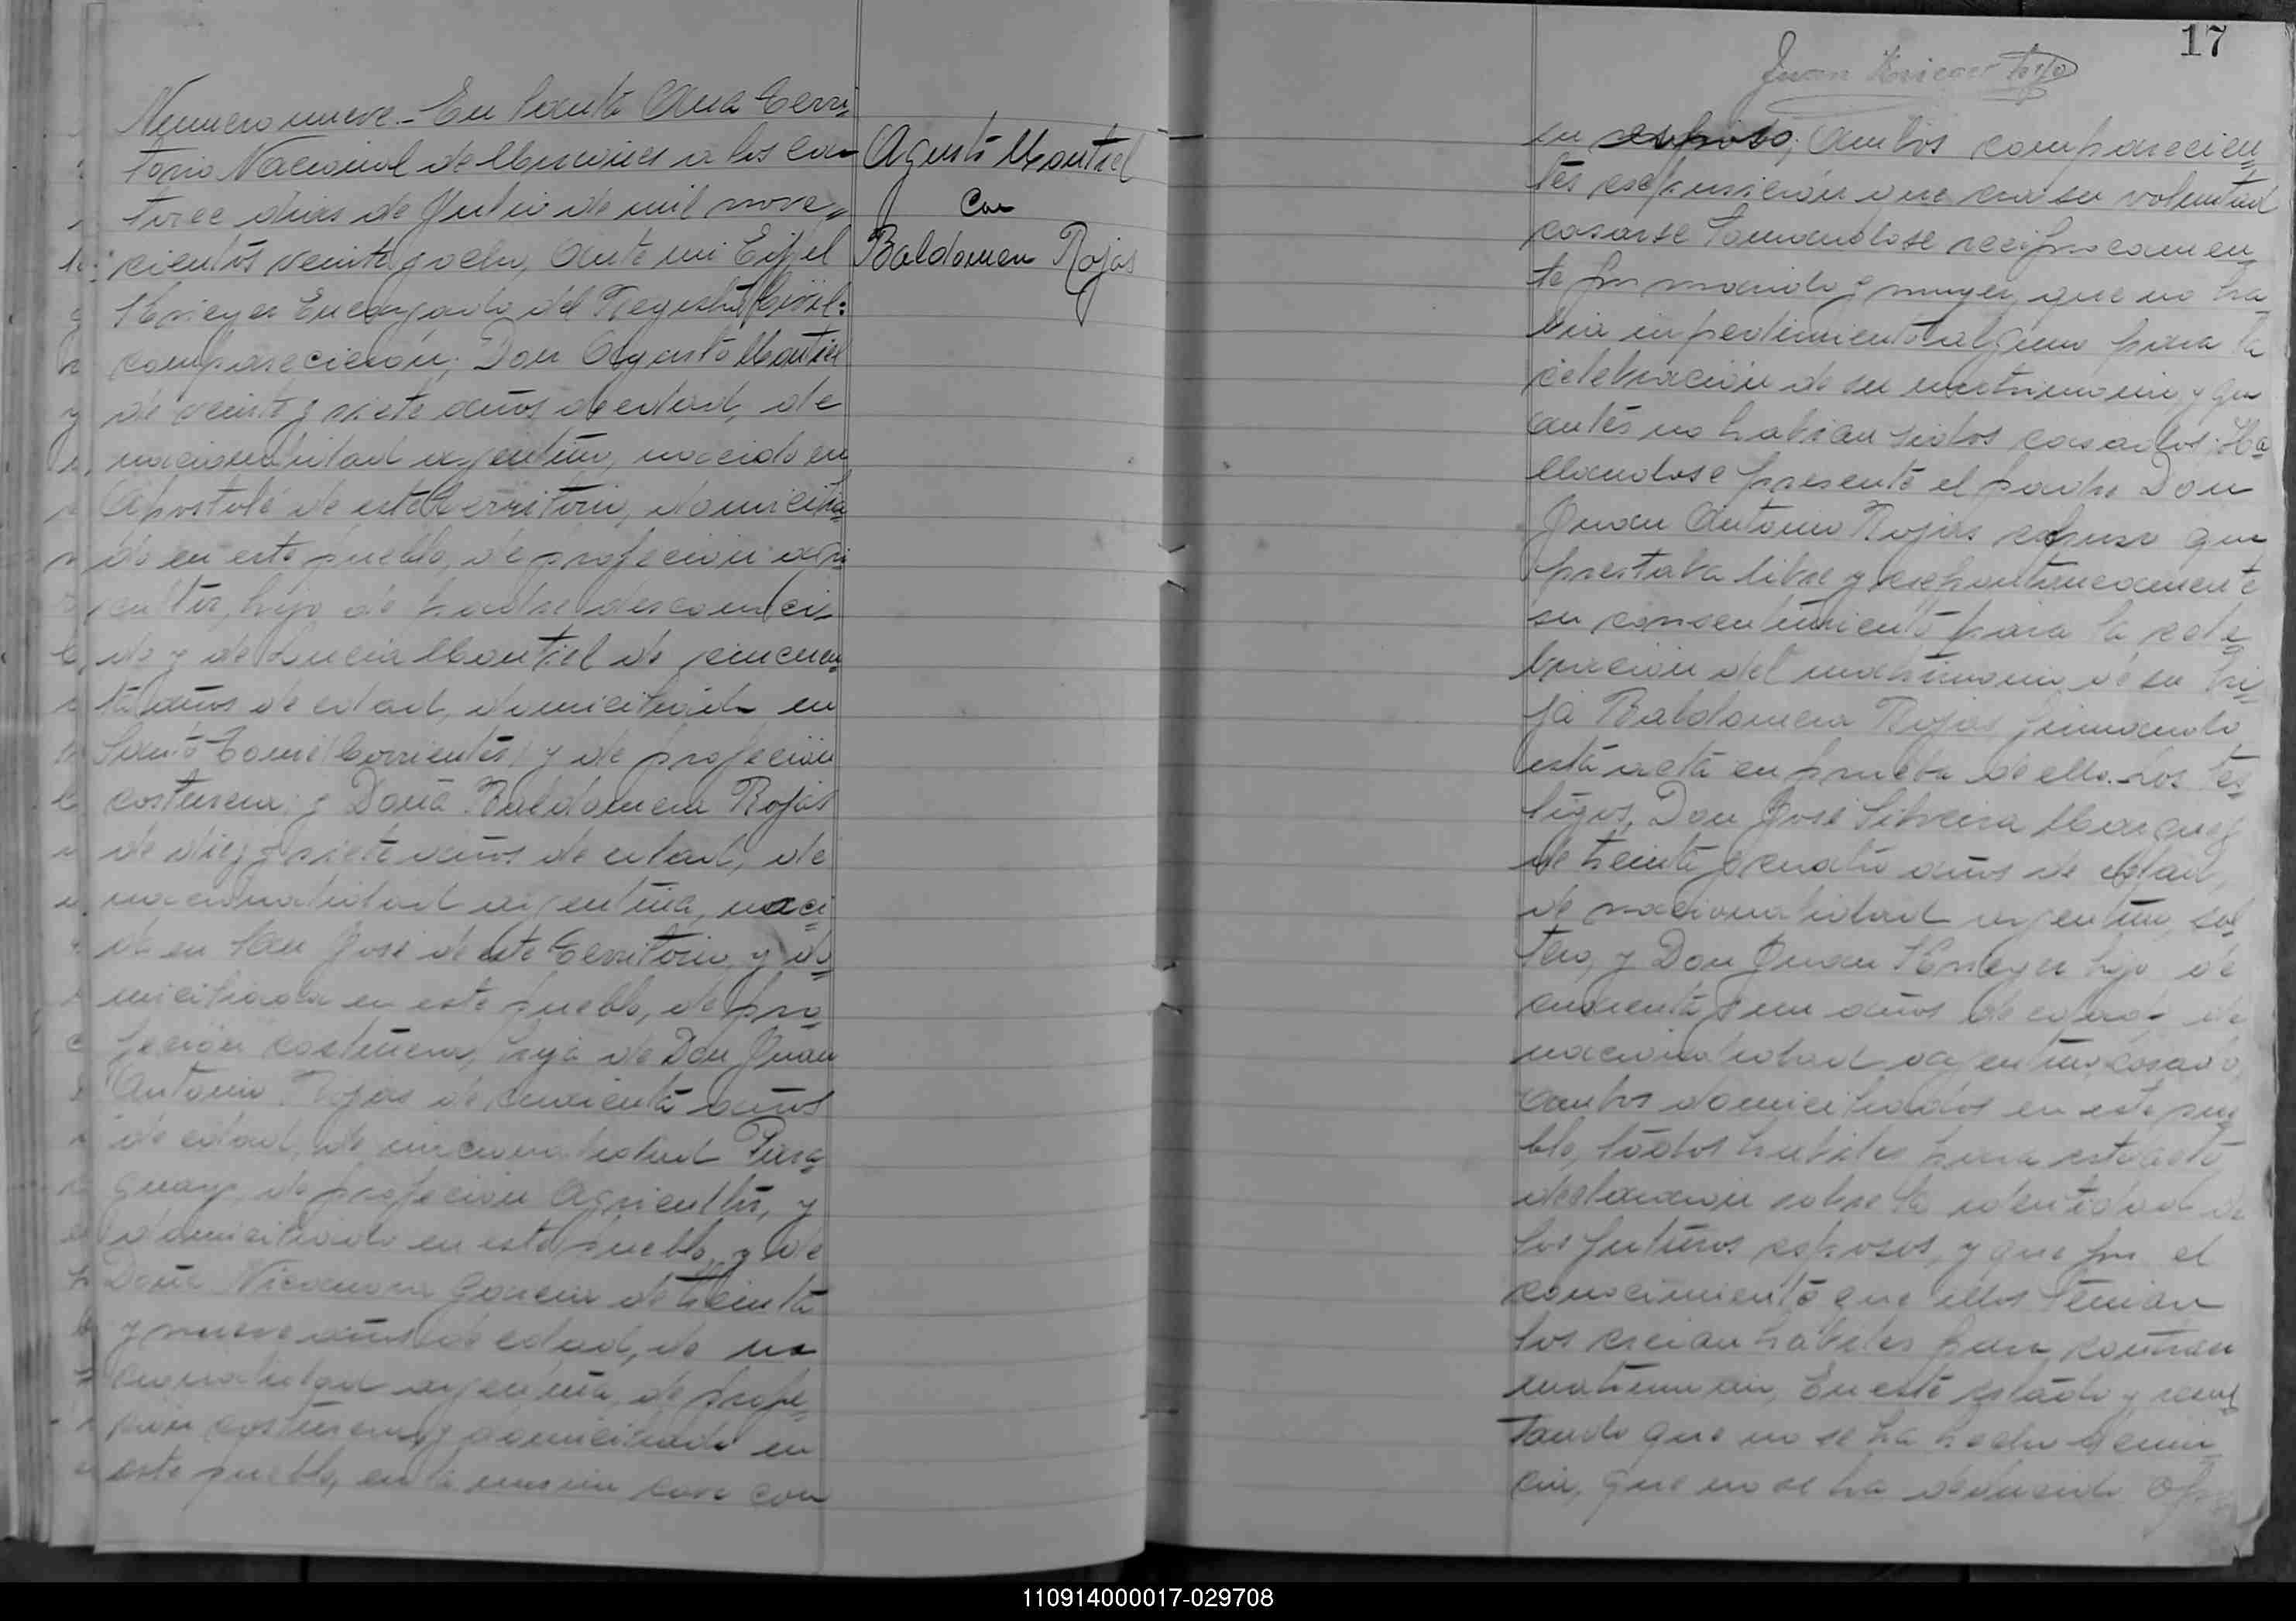 Numero nueve.- En Santa Ana Terri-
torio Nacional de Misiones a los ca-
torce dias de Julio de mil nove-
cientos veinte y ocho, Ante mi Eifel
Krieger Encargado del Registro Civil:
comparecieron; Don Agusto Montiel
de veinte y siete años de edad, de
nacionalidad argentino, nacido en
Apostolé de este Territorio, domicilia-
do en este pueblo, de profecion agri-
cultor, hijo de padre desconoci-
do y de Lucia Montiel de cincuen-
ta años de edad, domiciliada en
Santo Tomé (Corrientes) y de profecion
costurera; y Doña Baldomera Rojas
de diez y siete años de edad, de
nacionalidad argentina, naci-
da en San José de este Territorio, y do-
miciliada en este pueblo, de pro-
fecion costurera, hija de Don Juan
Antonio Rojas de cuarenta años
de edad, de nacionalidad Para-
guayo, de profecion Agricultor, y
domiciliado en este pueblo, y de
Doña Nicanora Garcia de treinta
y nueve años de edad, de na-
cionalidad argentina, de profe-
cion costurera, y domiciliada en
este pueblo, en la misma casa con
Agusto Montiel
Con
Baldomera Rojas
17
Juan Krieger hijo
su esposo; Ambos comparecien-
tes expusieron que era su voluntad
casarse tomandose reciprocamen-
te por marido y muger, que no ha-
bia impedimento alguno para la
celebracion de su matrimonio, y que
antes no habian sidos casados. Ha-
llandose presente el padre Don
Juan Antonio Rojas expuso que
prestaba libre y espontaneamente
su consentimiento para la cele-
bracion del matrimonio de su hi-
ja Baldomera Rojas firmando
esta acta en prueba de ello. Los tes-
tigos, Don José Silveira Marquez
de treinta y cuatro años de edad,
de nacionalidad argentino, sol-
tero, y Don Juan Krieger hijo de
cuarenta y un años de edad, de
nacionalidad argentino, casado,
ambos domiciliados en este pue-
blo, todos habiles para este acto,
declararon sobre la identidad de
los futuros esposos, y que por el
conocimiento que ellos tenian
los creian habiles para contraer
matrimonio, En este estado y resul-
tando que no se ha hecho denun-
cia, que no se ha deducido